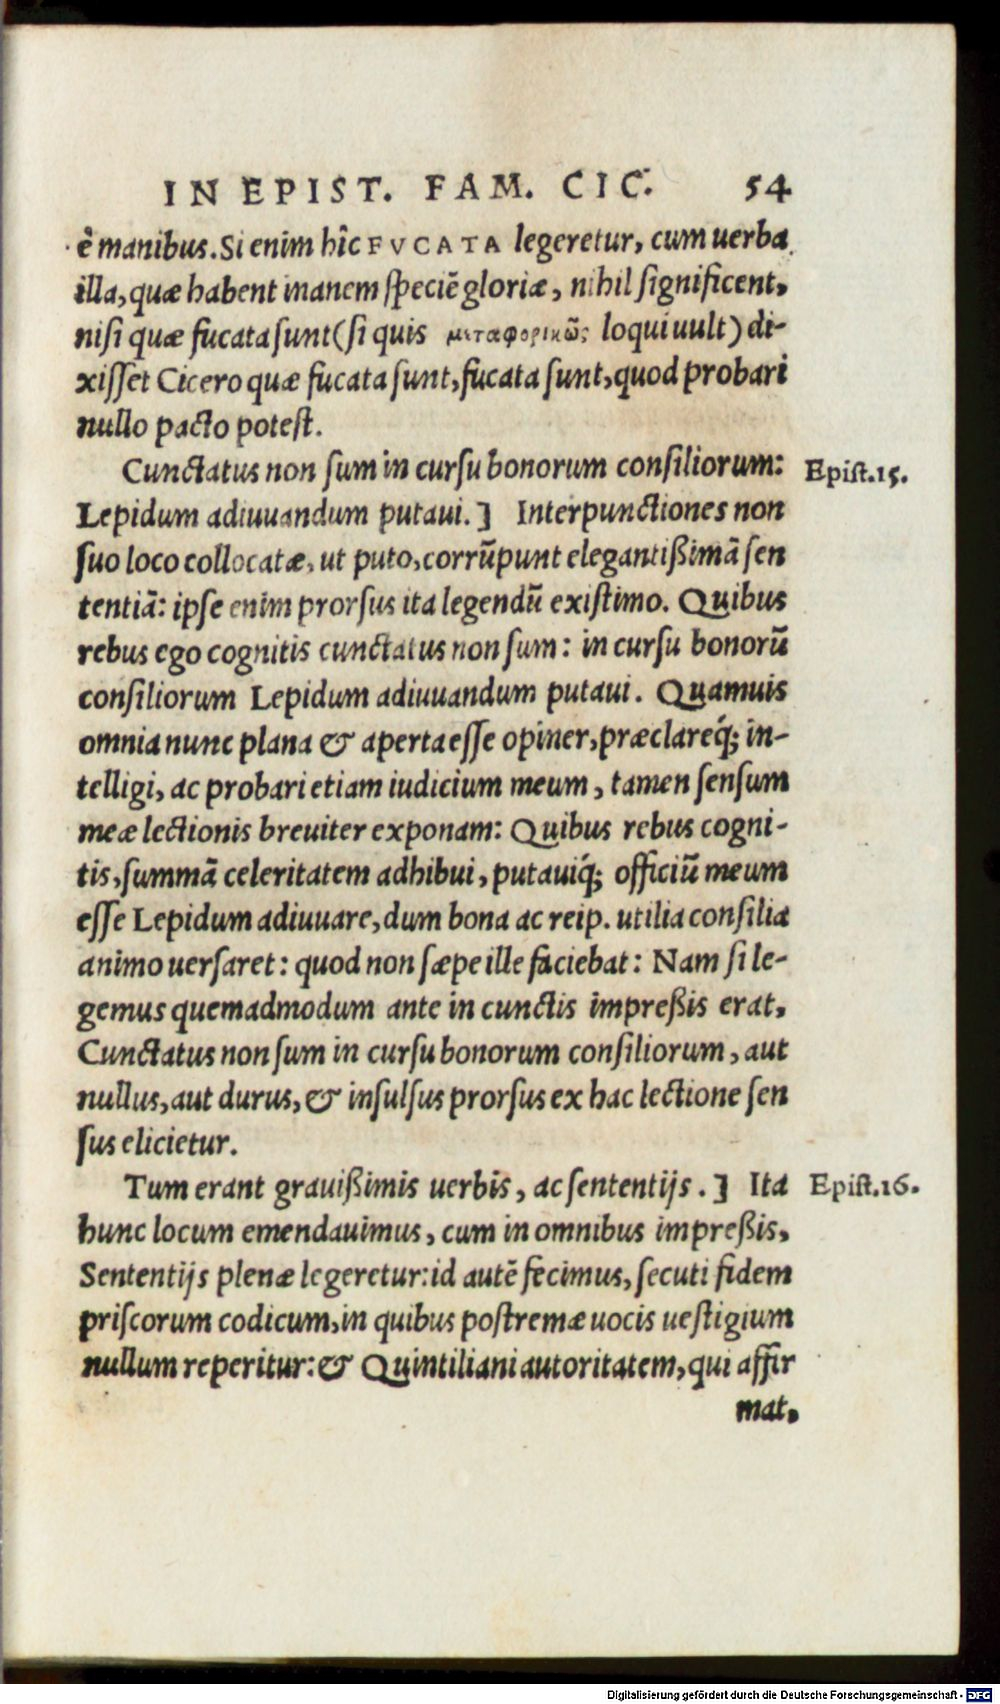 IN EPIST. FAM. CIC. 54
è manibus. Si enim hîc FVCATA legeretur, cum uerba
illa, quæ habent inanem speciẽ gloriæ, nihil significent,
nisi quæ fucata sunt (si quis μεταφορικῶς loqui uult) di-
xisset Cicero quæ fucata sunt, fucata sunt, quod probari
nullo pacto potest.
Cunctatus non sum in cursu bonorum consiliorum: Epist.15.
Lepidum adiuuandum putaui.] Interpunctiones non
suo loco collocatæ, ut puto, corrũpunt elegantißimã sen
tentiã: ipse enim prorsus ita legendũ existimo. Quibus
rebus ego cognitis cunctatus non sum: in cursu bonorũ
consiliorum Lepidum adiuuandum putaui. Quamuis
omnia nunc plana & aperta esse opiner, præclareq́; in-
telligi, ac probari etiam iudicium meum, tamen sensum
meæ lectionis breuiter exponam: Quibus rebus cogni-
tis, summã celeritatem adhibui, putauiq́; officiũ meum
esse Lepidum adiuuare, dum bona ac reip. utilia consilia
animo uersaret: quod non sæpe ille faciebat: Nam si le-
gemus quemadmodum ante in cunctis impreßis erat,
Cunctatus non sum in cursu bonorum consiliorum, aut
nullus, aut durus, & insulsus prorsus ex hac lectione sen
sus elicietur.
Tum erant grauißimis uerbis, ac sententijs.] Ita Epist.16.
hunc locum emendauimus, cum in omnibus impreßis,
Sententijs plenæ legeretur: id autẽ fecimus, secuti fidem
priscorum codicum, in quibus postremæ uocis uestigium
nullum reperitur: & Quintiliani autoritatem, qui affir
mat,
Digitalisierung gefördert durch die Deutsche Forschungsgemeinschaft - DFG